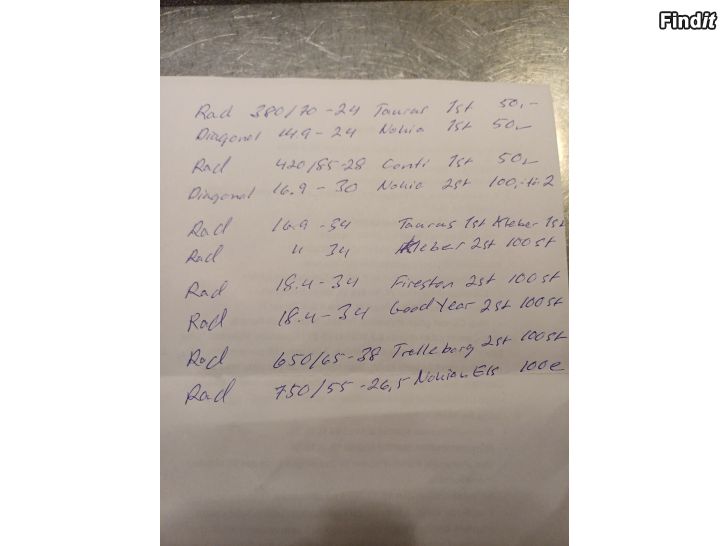 Findit
Rad 380/70-24 Taurus 1st 50,-
Diagonal 14.9-24 Nokia 1st 50,-
Rad 420/85-28 Conti 1st 50,-
Diagonal 16.9-30 Nokia 2st 100,- 2
Rad 16.9-34 Taurus 1st Kleber 1st
Rad " 34 Kleber 2st 100st
Rad 18.4-34 Fireston 2st 100st
Rad 18.4-34 GoodYear 2st 100st
Rad 650/65-38 Trelleborg 2st 100st
Rad 750/55-26,5 Nokian Els 100e